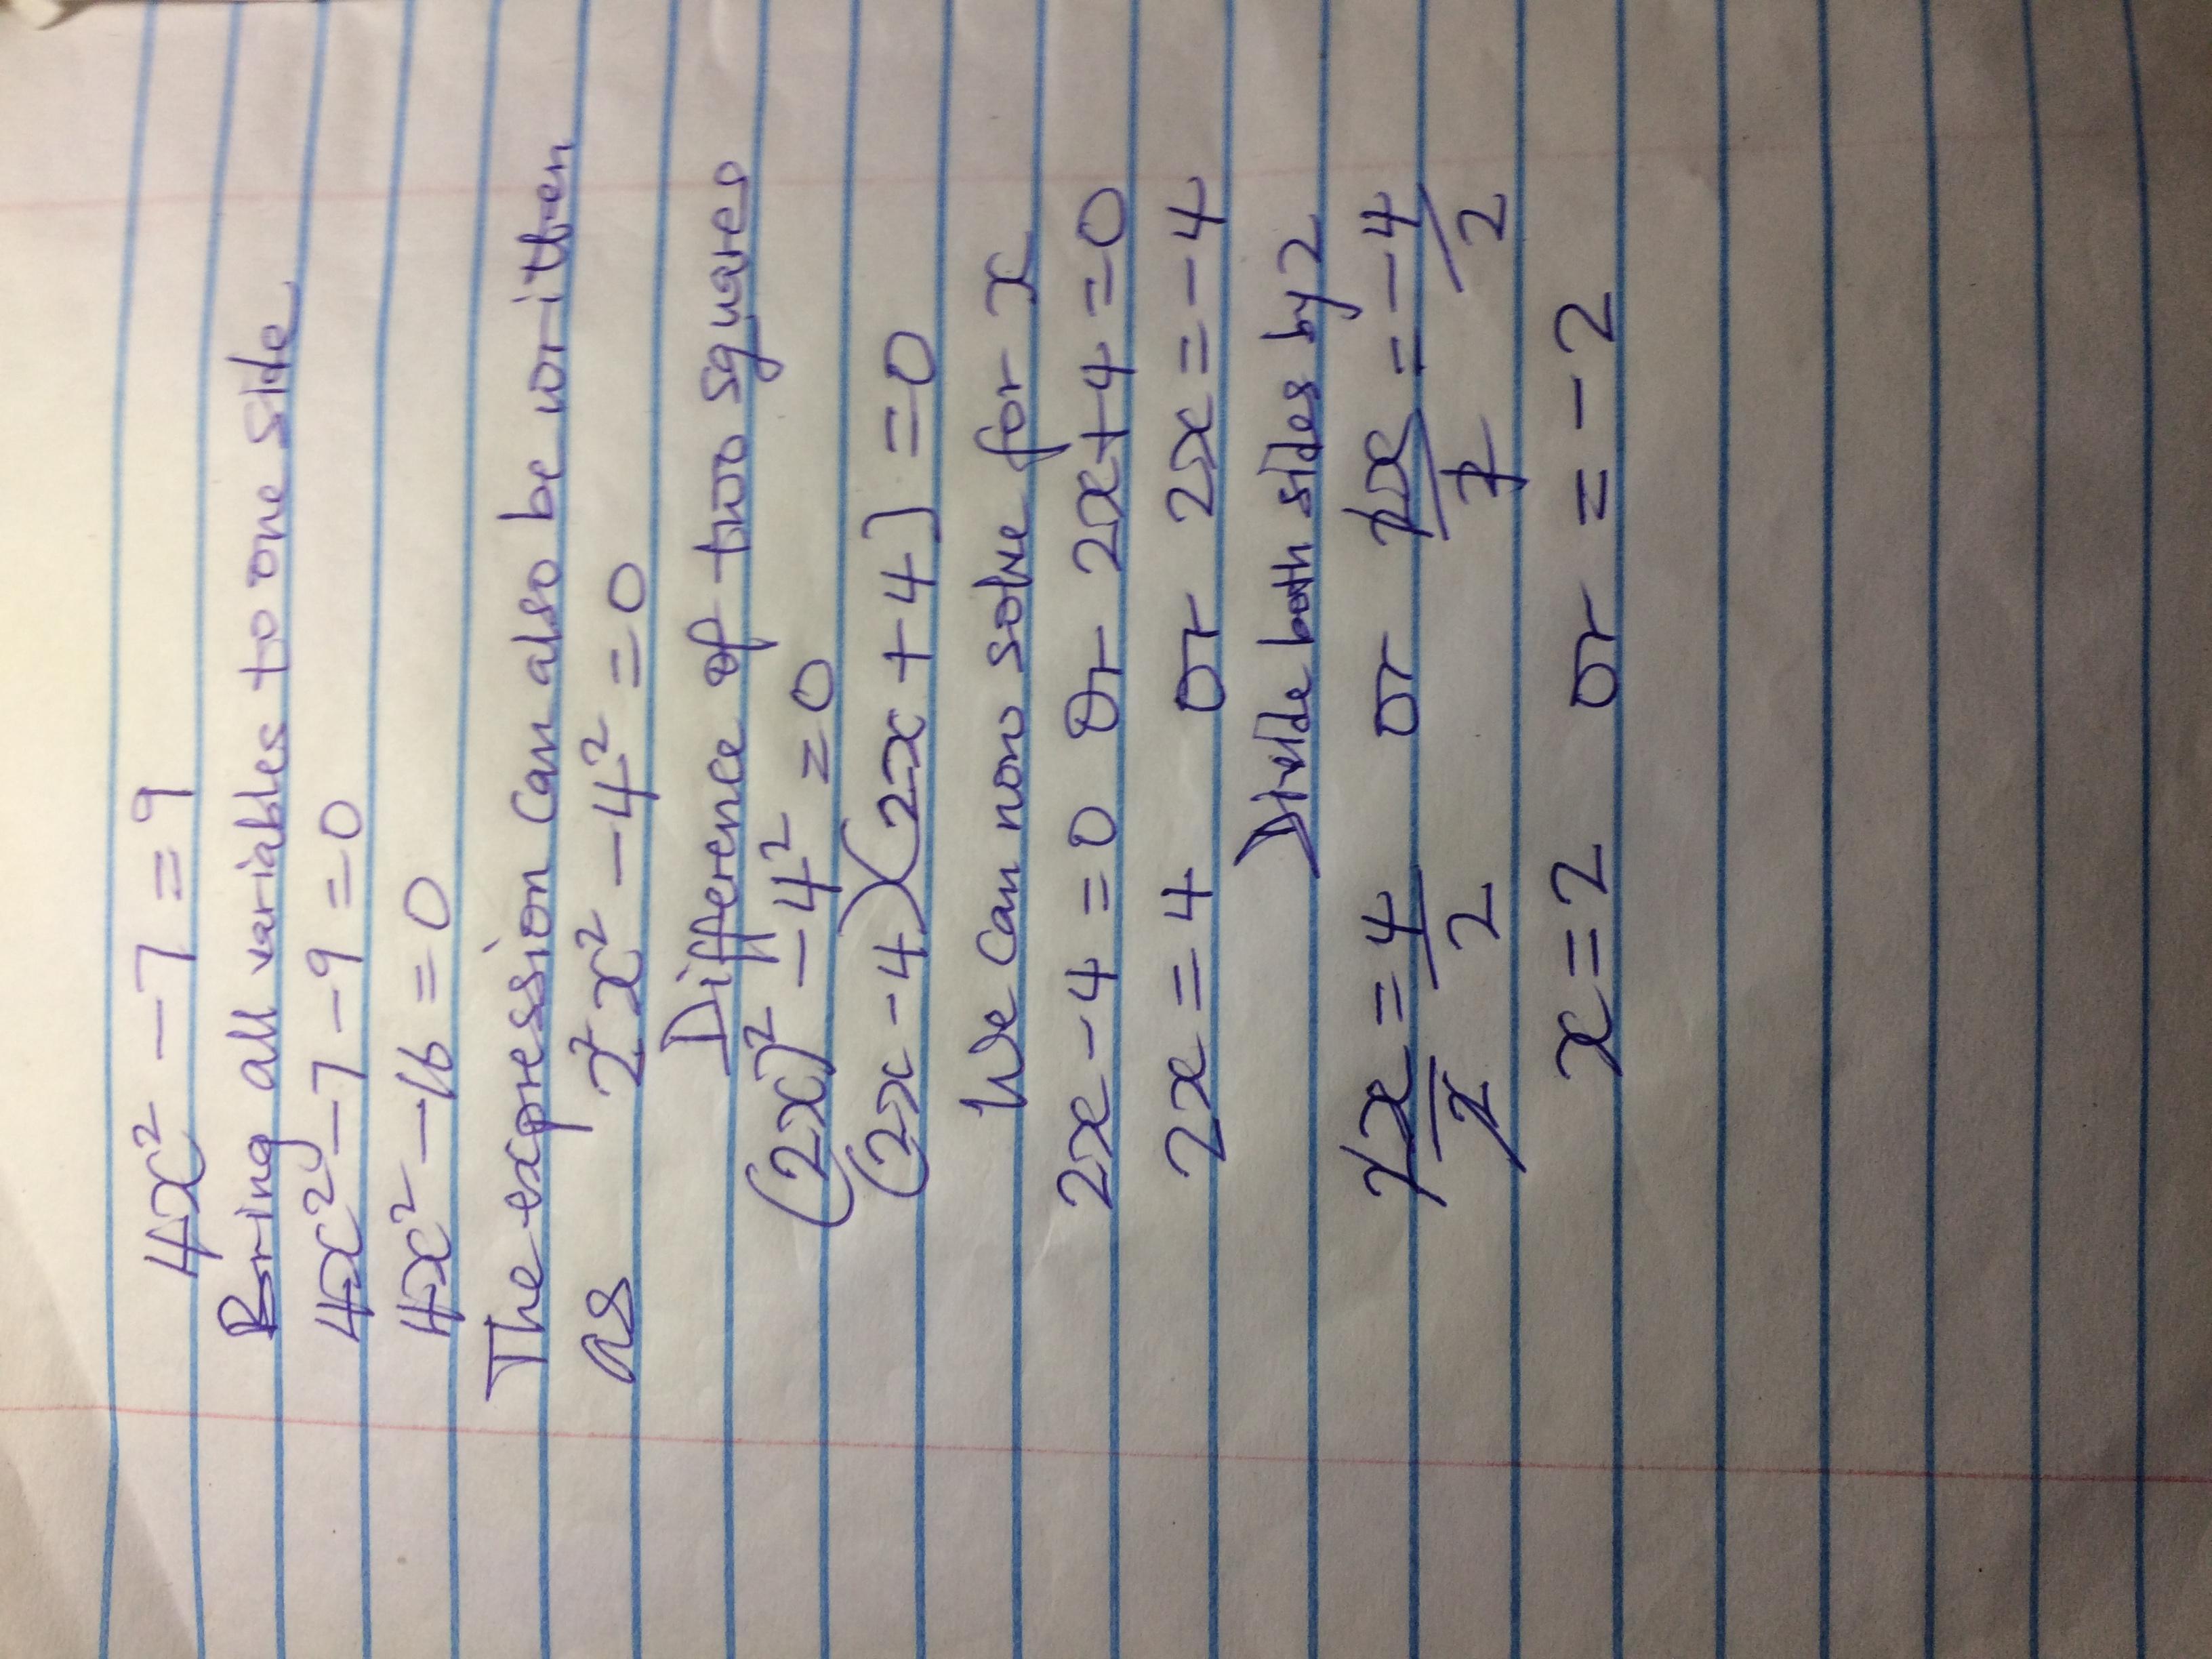 4x² - 7 = 9
Bring all variables to one side
4x² - 7 - 9 = 0
4x² - 16 = 0
The expression can also be written
as 2²x² - 4² = 0
Difference of two squares
(2x)² - 4² = 0
(2x - 4)(2x + 4) = 0
We can now solve for x
2x - 4 = 0 or 2x + 4 = 0
2x = 4 or 2x = -4
Divide both sides by 2
2x/2 = 4/2 or 2x/2 = -4/2
x = 2 or = -2